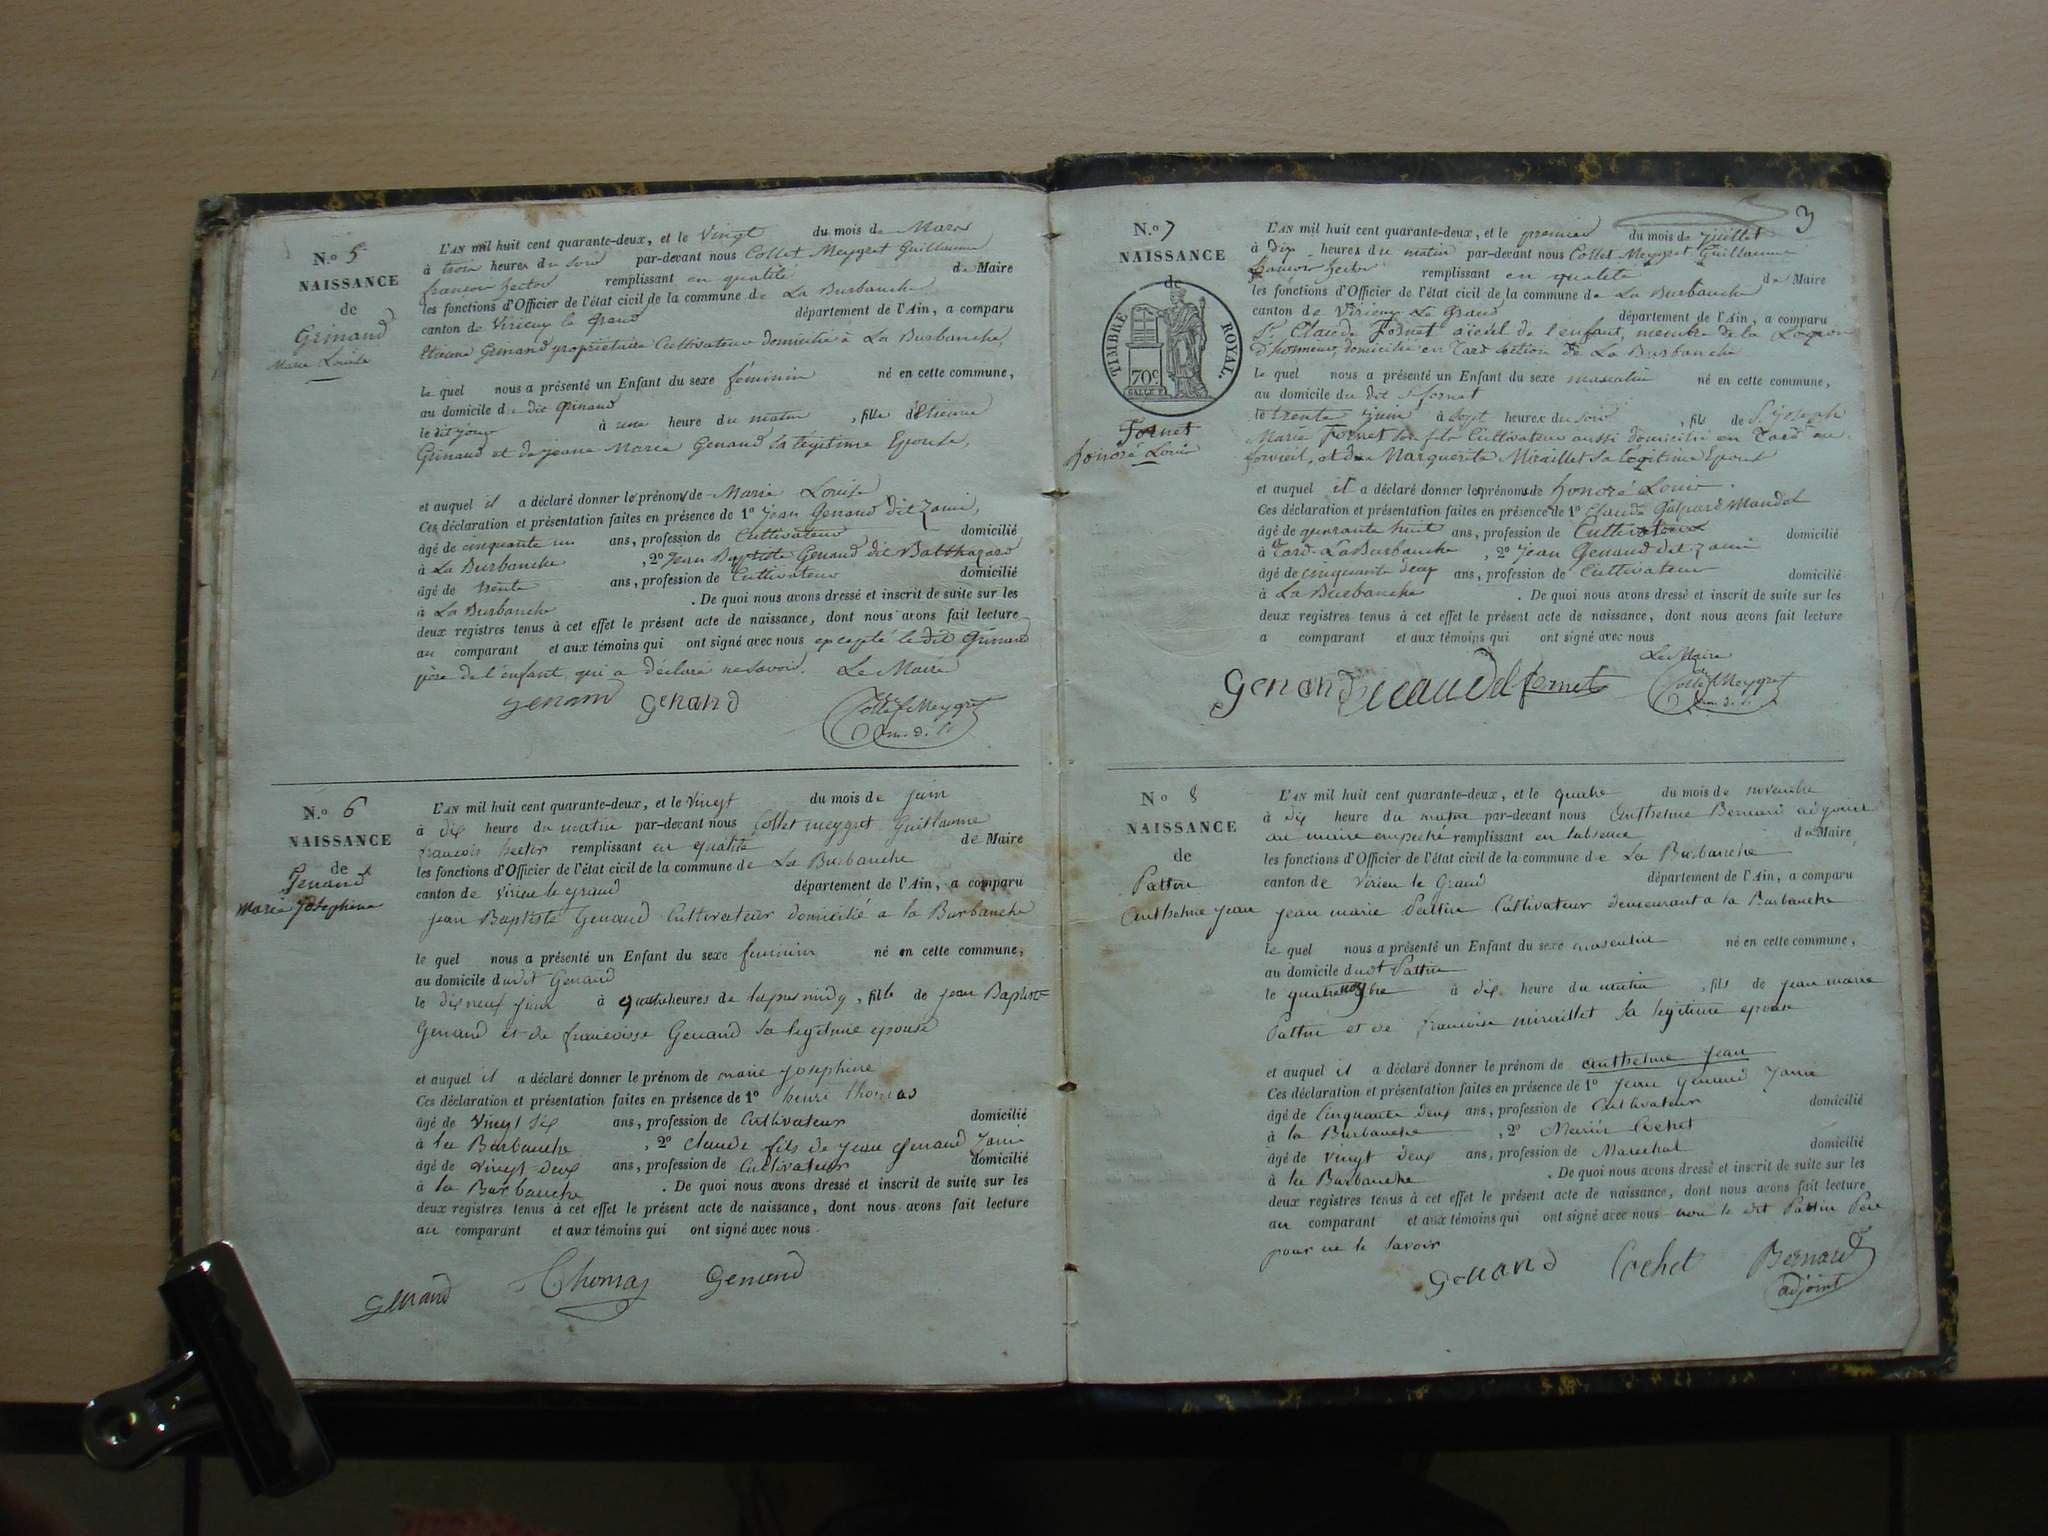 N.o 5
NAISSANCE
de
Grinand
Marie Louise
L'AN mil huit cent quarante-deux, et le vingt du mois de Mars
à trois heures du soir par-devant nous Collet Meygret Guillaume
francois hector remplissant en qualité de Maire
les fonctions d'Officier de l'état civil de la commune de La Burbanche
canton de Virieux le Grand département de l'Ain, a comparu
Etienne Grinand propriétaire Cultivateur domicilié à La Burbanche,
le quel nous a présenté un Enfant du sexe féminin né en cette commune,
au domicile du dit Grinand
le dit jour à une heure du matin, fille d'Etienne
Grinand et de jeane Marie Genand sa légitime Epouse,
et auquel il a déclaré donner le prénom de Marie Louise
Ces déclaration et présentation faites en présence de 1o jean Genand dit Zami,
âgé de cinquante un ans, profession de Cultivateur domicilié
à La Burbanche, 2o jean Baptiste Genand dit Balthazard
âgé de trente ans, profession de Cultivateur domicilié
à La Burbanche. De quoi nous avons dressé et inscrit de suite sur les
deux registres tenus à cet effet le présent acte de naissance, dont nous avons fait lecture
au comparant et aux témoins qui ont signé avec nous excepté le dit Grinand
père de l'enfant, qui a déclaré ne savoir. Le Maire
genand genand Collet Meygret
N.o 6
NAISSANCE
de
Genand
marie Josephine
L'AN mil huit cent quarante-deux, et le vingt du mois de juin
à dix heure du matin par-devant nous Collet meygret Guillaume
francois hector remplissant en qualité de Maire
les fonctions d'Officier de l'état civil de la commune de La Burbanche
canton de virieu le grand département de l'Ain, a comparu
jean Baptiste Genand Cultivateur domicilié a la Burbanche
le quel nous a présenté un Enfant du sexe feminin né en cette commune,
au domicile dudit Genand
le dix neuf juin à quatre heures de , fille de jean Baptiste
Genand et de francoisse Genand sa legitime epouse
et auquel il a déclaré donner le prénom de marie josephine
Ces déclaration et présentation faites en présence de 1o henri thomas
âgé de vingt six ans, profession de Cultivateur domicilié
à la Burbanche, 2o claude fils de jean genand zami
âgé de vingt deux ans, profession de Cultivateur domicilié
à la Burbanche. De quoi nous avons dressé et inscrit de suite sur les
deux registres tenus à cet effet le présent acte de naissance, dont nous avons fait lecture
au comparant et aux témoins qui ont signé avec nous.
genand Thomas Genand
3
N.o 7
NAISSANCE
de
TIMBRE ROYAL.
70c
Fornet
honoré Louis
L'AN mil huit cent quarante-deux, et le premier du mois de juillet
à dix heures du matin par-devant nous Collet Meygret Guillaume
francois hector remplissant en qualité de Maire
les fonctions d'Officier de l'état civil de la commune de La Burbanche
canton de Virieux Le Grand département de l'Ain, a comparu
Sr. Claude Fornet aieul de l'enfant, membre de la Legion
d'honneur, domicilié en Tard section de La Burbanche
le quel nous a présenté un Enfant du sexe masculin né en cette commune,
au domicile du dit Sr fornet
le trente juin à sept heures du soir, fils de Sr. joseph
Marie Fornet son fils Cultivateur aussi domicilié en Tard au
, et de Marguerite Miraillet sa legitime Epouse
et auquel il a déclaré donner le prénom de honoré Louis.
Ces déclaration et présentation faites en présence de 1o Claude Gaspard
âgé de quarante huit ans, profession de Cultivateur domicilié
à Tard La Burbanche, 2o jean Genand dit zami
âgé de cinquante deux ans, profession de Cultivateur domicilié
à La Burbanche. De quoi nous avons dressé et inscrit de suite sur les
deux registres tenus à cet effet le présent acte de naissance, dont nous avons fait lecture
a comparant et aux témoins qui ont signé avec nous
Le Maire
genand fornet Collet Meygret
No 8
NAISSANCE
de
Pattin
anthelme jean
L'AN mil huit cent quarante-deux, et le quatre du mois de novembre
à dix heure du matin par-devant nous Anthelme Bernard adjoint
au maire empeché remplissant en labsence du Maire
les fonctions d'Officier de l'état civil de la commune de La Burbanche
canton de Virieu le Grand département de l'Ain, a comparu
jean marie Pattin Cultivateur demeurant a la Burbanche
le quel nous a présenté un Enfant du sexe masculin né en cette commune,
au domicile dudt Pattin
le quatre novbre à dix heure du matin, fils de jean marie
Pattin et de francoise miraillet sa legitime epouse
et auquel il a déclaré donner le prénom de anthelme jean
Ces déclaration et présentation faites en présence de 1o jean genand zami
âgé de Cinquante deux ans, profession de Cultivateur domicilié
à la Burbanche, 2o Marin Cochet
âgé de vingt deux ans, profession de Marechal domicilié
à la Burbanche. De quoi nous avons dressé et inscrit de suite sur les
deux registres tenus à cet effet le présent acte de naissance, dont nous avons fait lecture
au comparant et aux témoins qui ont signé avec nous non le dit Pattin Pere
pour ne le savoir
genand Cochet Bernard
adjoint